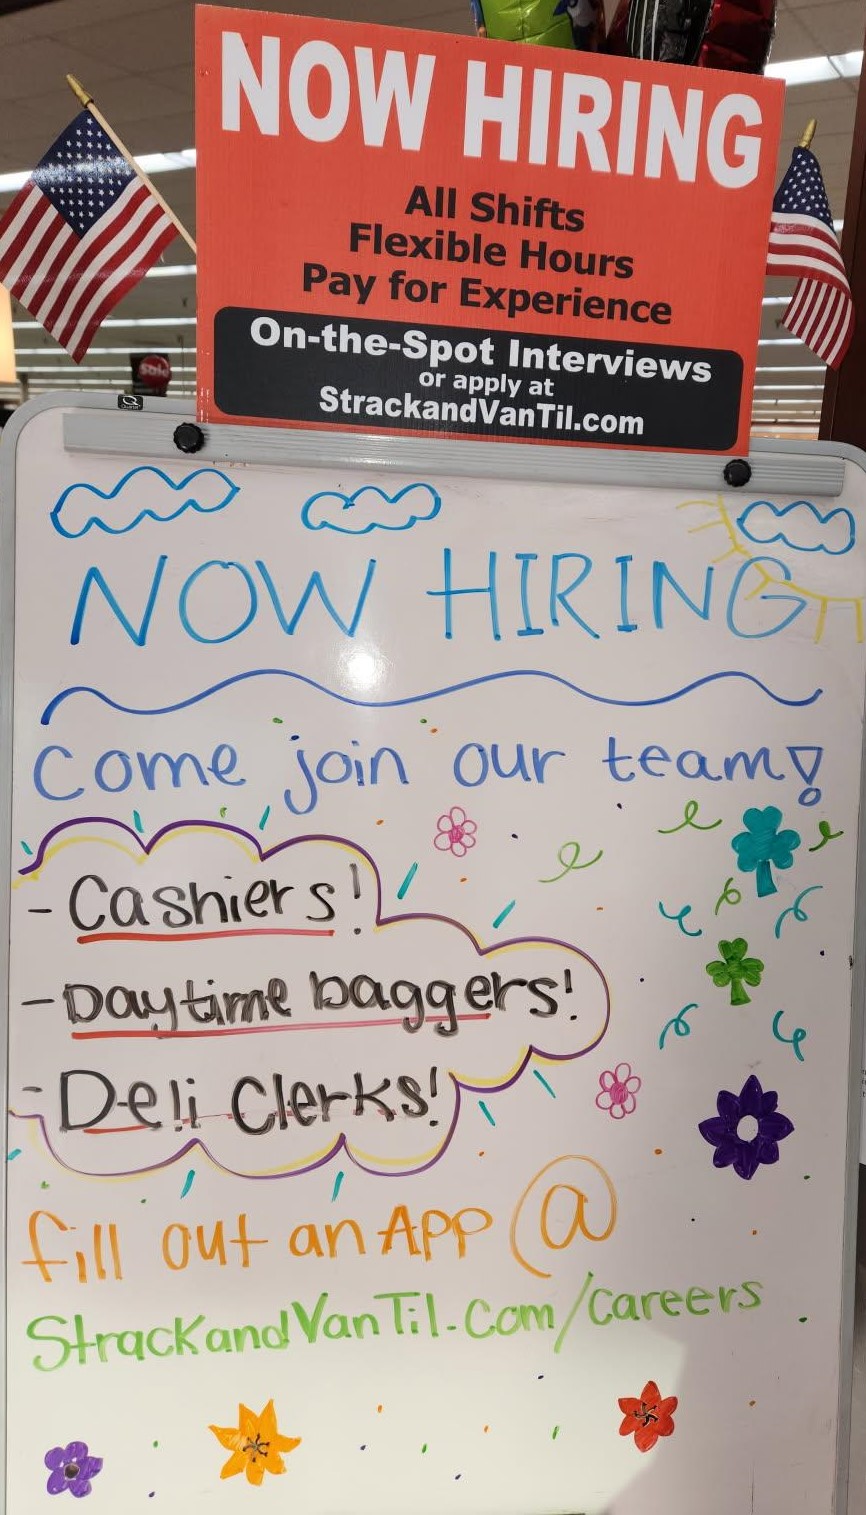 NOW HIRING
All Shifts
Flexible Hours
Pay for Experience
On-the-Spot Interviews
or apply at
StrackandVanTil.com
Sale
NOW HIRING
Come join our team!
- Cashiers!
- Daytime baggers!
- Deli Clerks!
fill out an App @
StrackandVanTil.com/careers